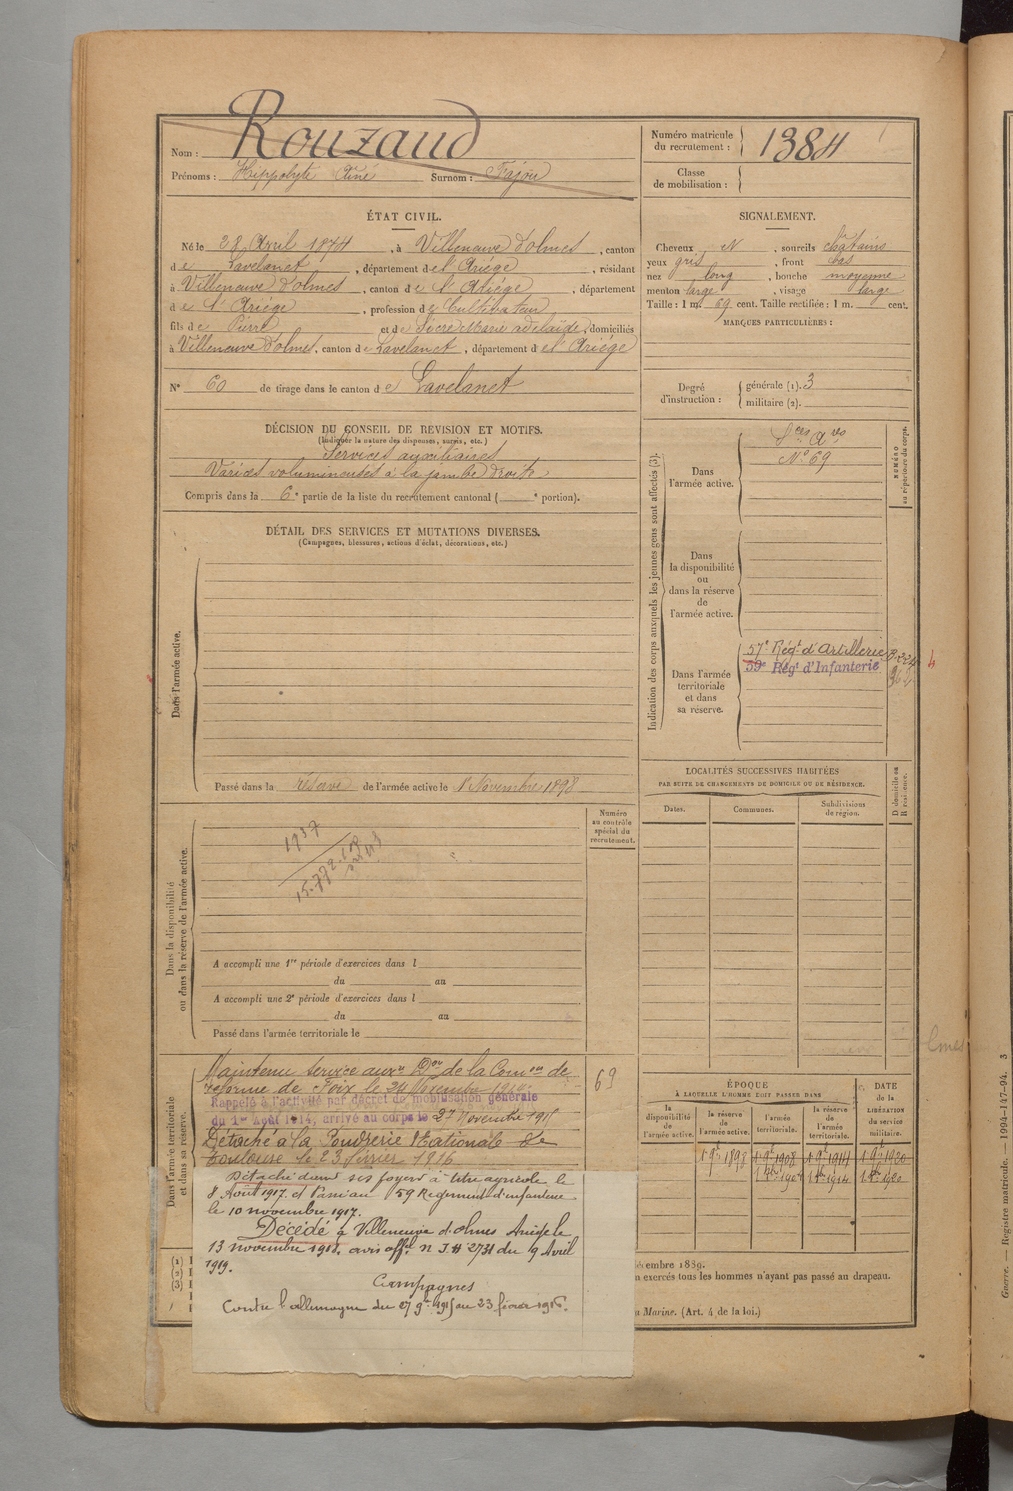 Nom : Rouzaud
Prénoms : Hippolyte Aimé Surnom : Fajou
Numéro matricule du recrutement : 1384
Classe de mobilisation :
ÉTAT CIVIL.
Né le 28 Avril 1874, à Villeneuve d'olmes, canton
de Lavelanet, département de l'Ariége, résidant
à Villeneuve d'olmes, canton de l'Ariége, département
de l'Ariége, profession de Cultivateur
fils de Pierre et de Marie adelaïde, domiciliés
à Villeneuve d'olmes, canton de Lavelanet, département de l'Ariége
N° 60 de tirage dans le canton de Lavelanet
SIGNALEMENT.
Cheveux N, sourcils châtains
yeux gris, front bas
nez long, bouche moyenne
menton large, visage large
Taille : 1 m. 69 cent. Taille rectifiée : 1 m. cent.
MARQUES PARTICULIÈRES :
Degré d'instruction : générale (1). 3
militaire (2).
DÉCISION DU CONSEIL DE REVISION ET MOTIFS.
(Indiquer la nature des dispenses, sursis, etc.)
Services auxiliaires
Varices volumineuses à la jambe droite
Compris dans la 6e partie de la liste du recrutement cantonal ( e portion).
DÉTAIL DES SERVICES ET MUTATIONS DIVERSES.
(Campagnes, blessures, actions d'éclat, décorations, etc.)
Dans l'armée active.
Passé dans la réserve de l'armée active le 1 Novembre 1898
Indication des corps auxquels les jeunes gens sont affectés (3).
NUMÉRO au répertoire du corps.
Dans l'armée active.
Sces Ares
N° 69
Dans la disponibilité ou dans la réserve de l'armée active.
Dans l'armée territoriale et dans sa réserve.
57e Régt d'Artillerie
59e Régt d'Infanterie
Dans la disponibilité ou dans la réserve de l'armée active.
1937
Numéro au contrôle spécial du recrutement.
A accompli une 1re période d'exercices dans l
du au
A accompli une 2e période d'exercices dans l
du au
Passé dans l'armée territoriale le
LOCALITÉS SUCCESSIVES HABITÉES
PAR SUITE DE CHANGEMENTS DE DOMICILE OU DE RÉSIDENCE.
Dates. Communes. Subdivisions de région. D domicile ou R résidence.
Dans l'armée territoriale et dans sa réserve.
Maintenu Service auxre Don de la Comon de
réforme de Foix le 24 Novembre 1914
69
Rappelé à l'activité par décret de mobilisation générale
du 1er Août 1914, arrivé au corps le 27 Novembre 1915
Détaché à la Poudrerie Nationale de
Toulouse le 23 février 1916
Détaché dans ses foyers à titre agricole le
8 Août 1917. et Passé au 59 Regiment d'infanterie
le 10 novembre 1917.
Décédé à Villeneuve d'olmes Ariège le
13 novembre 1918. avis offel n J.H 2731 du 9 Avril
1919.
Campagnes
Contre l'allemagne du 27 9bre 1915 au 23 février 1916.
ÉPOQUE
À LAQUELLE L'HOMME DOIT PASSER DANS
la disponibilité de l'armée active. la réserve de l'armée active. l'armée territoriale. la réserve de l'armée territoriale.
DATE de la LIBÉRATION du service militaire.
1 9bre 1898 1 9bre 1908 1 9bre 1914 1 9bre 1920
(1) I
(2) I
(3) I
cembre 1889.
n exercés tous les hommes n'ayant pas passé au drapeau.
a Marine. (Art. 4 de la loi.)
Guerre. — Registre matricule. — 1994-147-94. 3